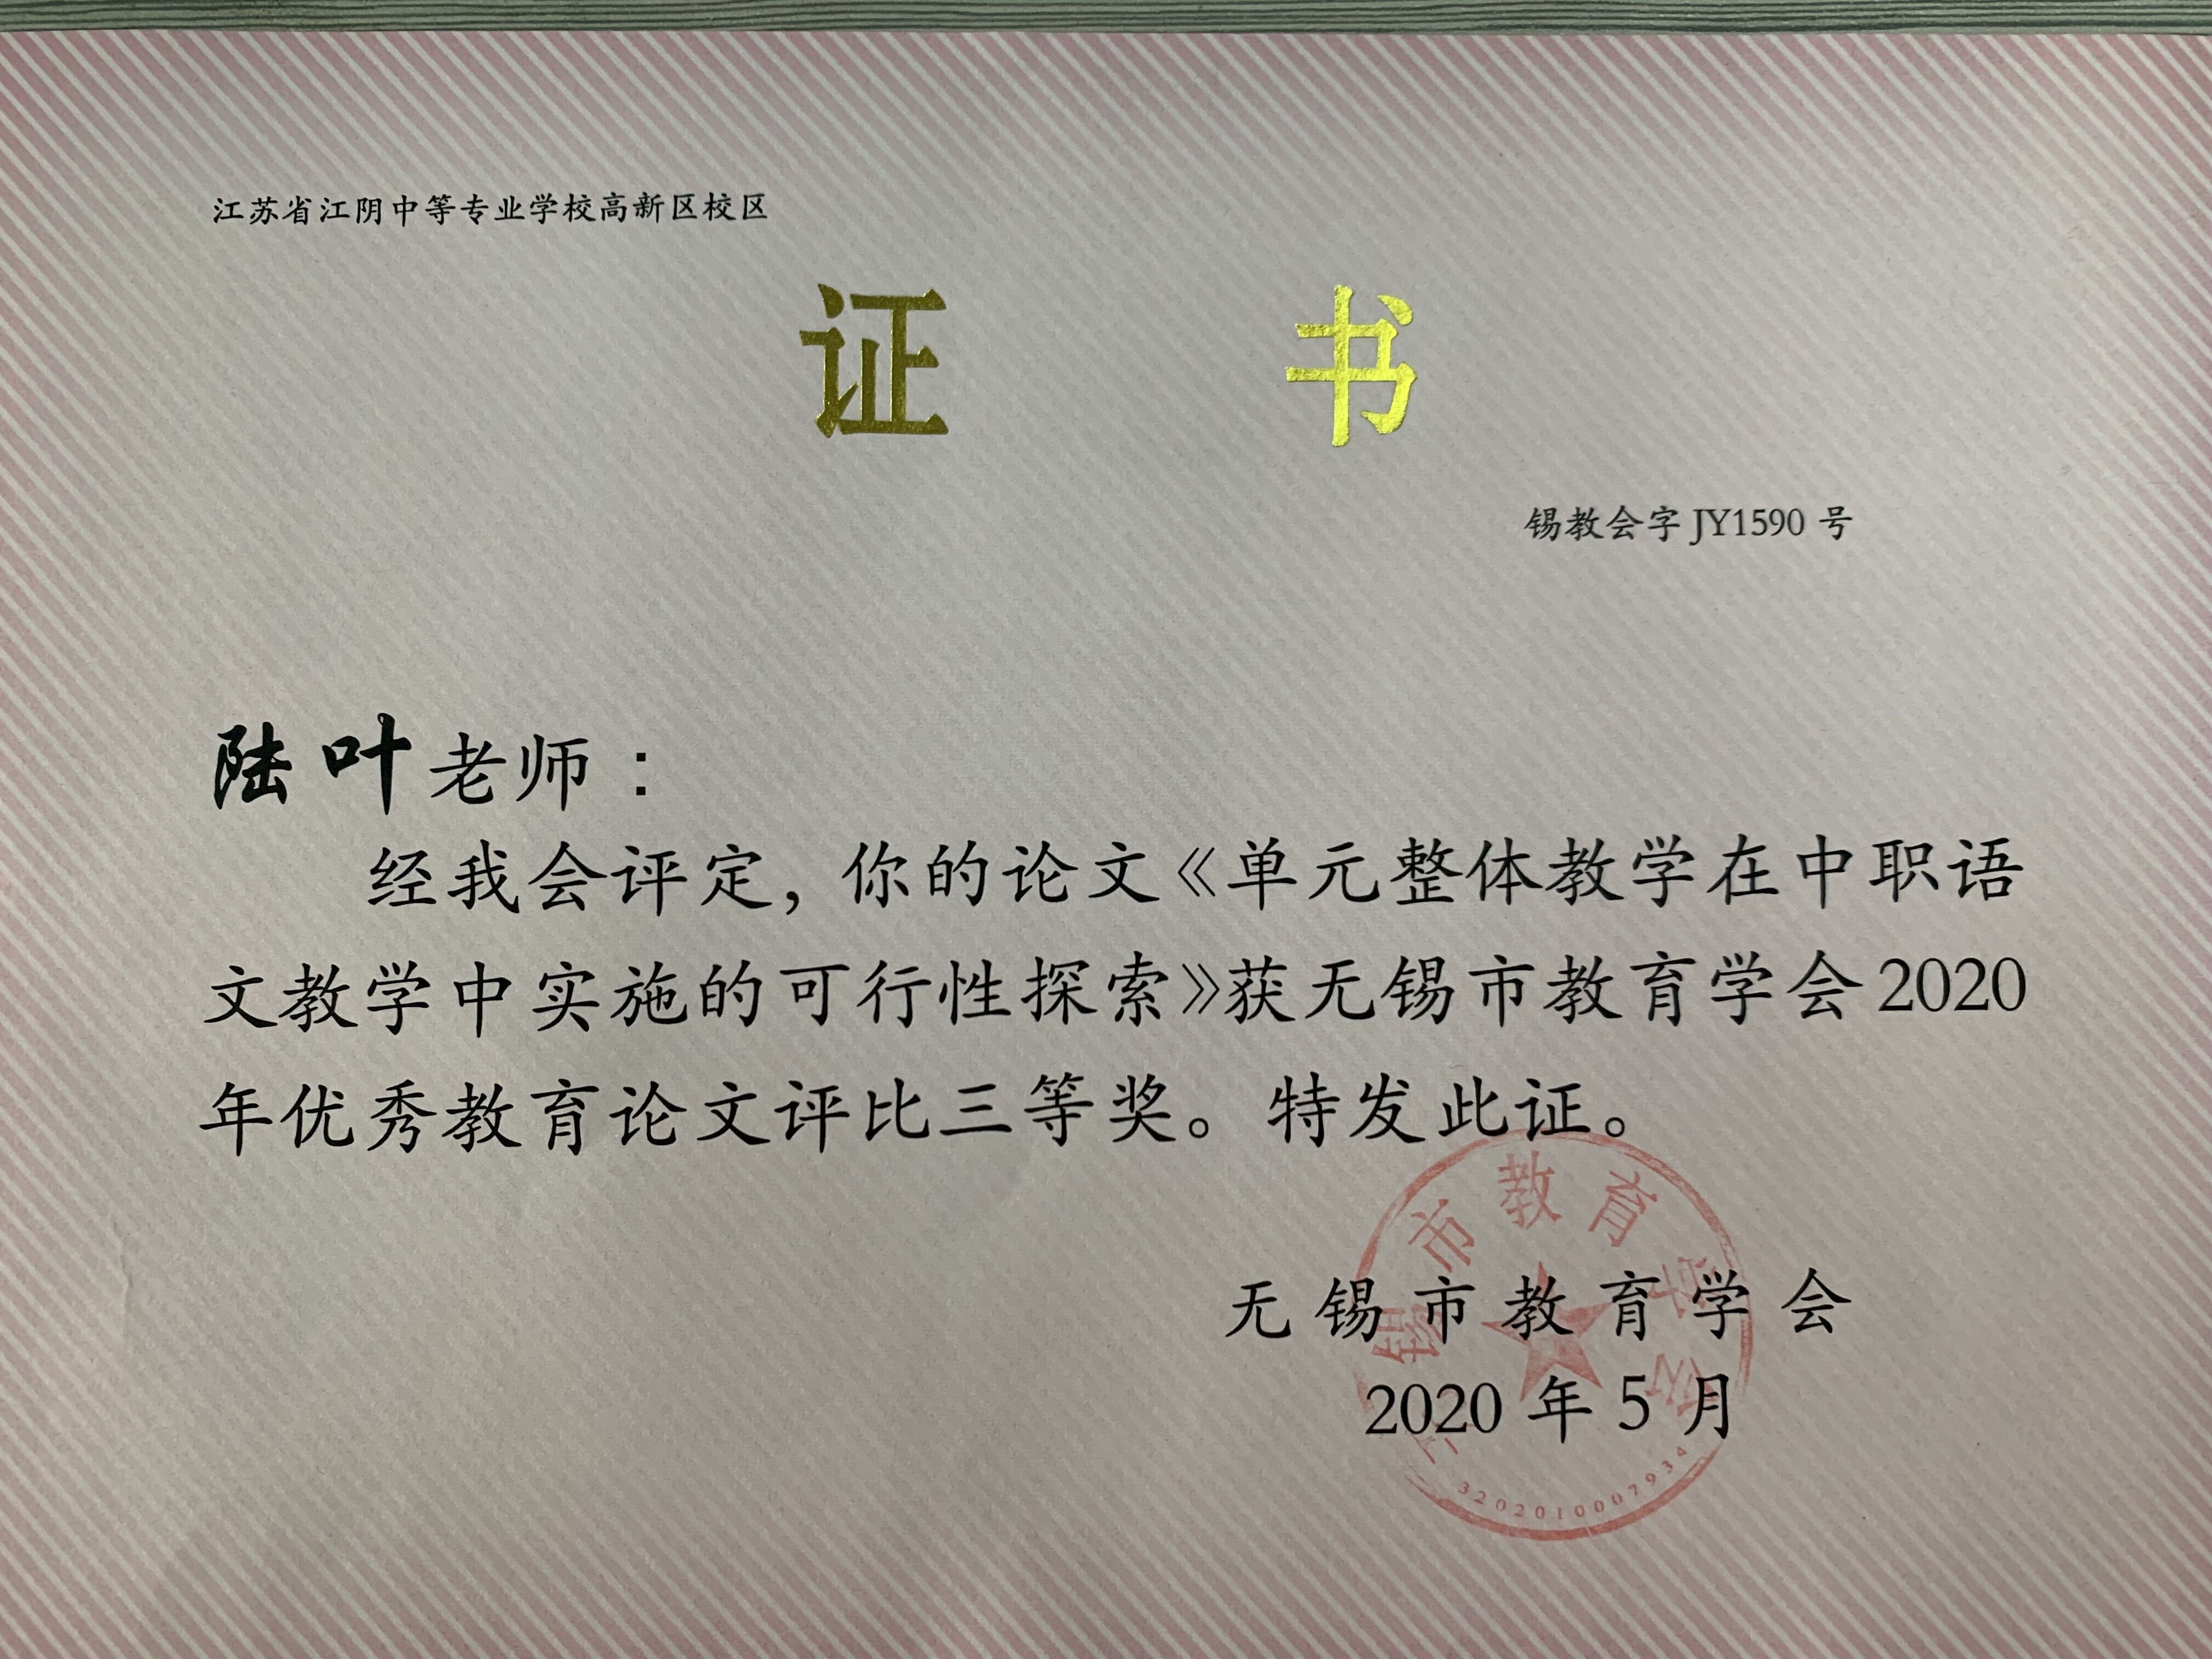 江苏省江阴中等专业学校高新区校区
证 书
锡教会字 JY1590 号
陆叶老师：
经我会评定，你的论文《单元整体教学在中职语
文教学中实施的可行性探索》获无锡市教育学会2020
年优秀教育论文评比三等奖。特发此证。
无锡市教育学会
2020 年 5 月
锡市教育学会
3202010007934